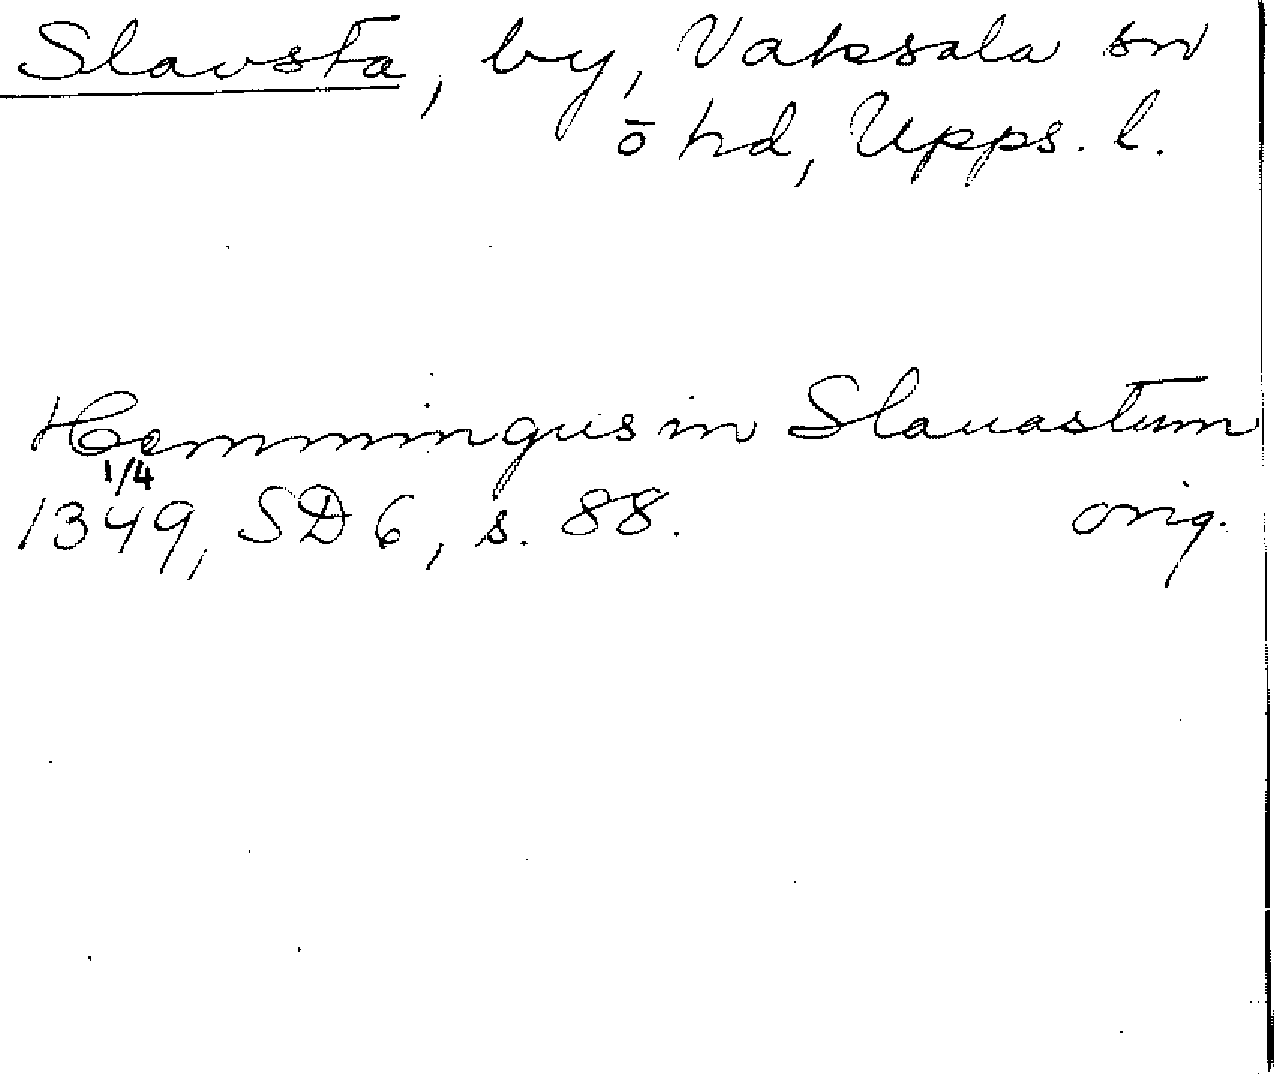 Slavsta, by, Vaksala sn
ō hd, Upps. l.
Hemmingus in Slauastum
1/4
1349, SD 6, s. 88. orig.